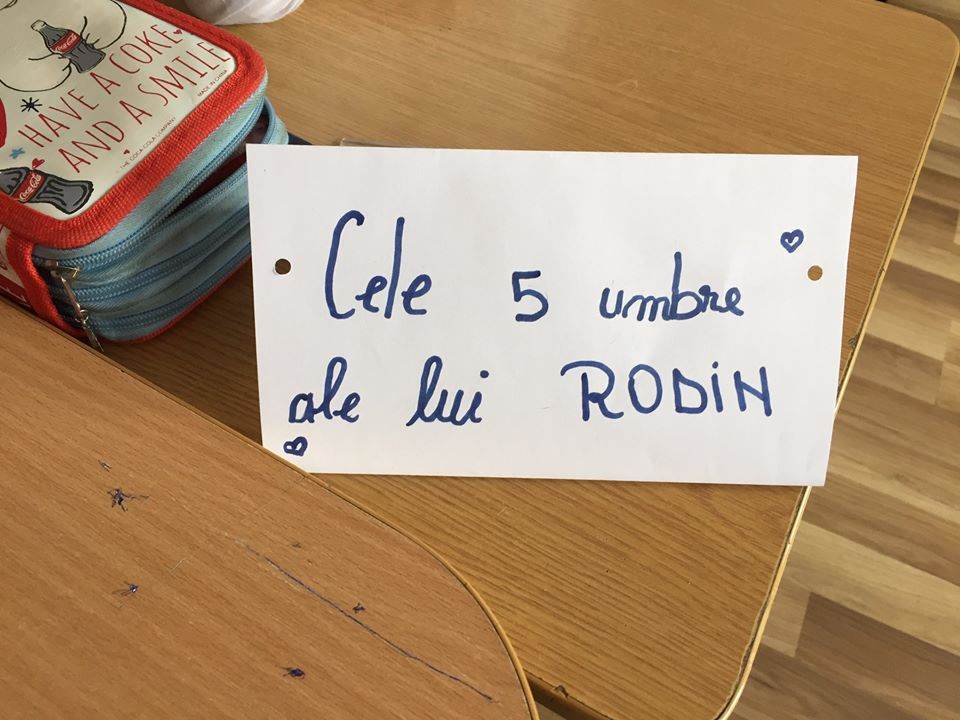 HAVE A COKE
AND A SMILE
THE COCA-COLA COMPANY
MADE IN CHINA
Coca-Cola
Coca-Cola
Cele 5 umbre
ale lui RODIN